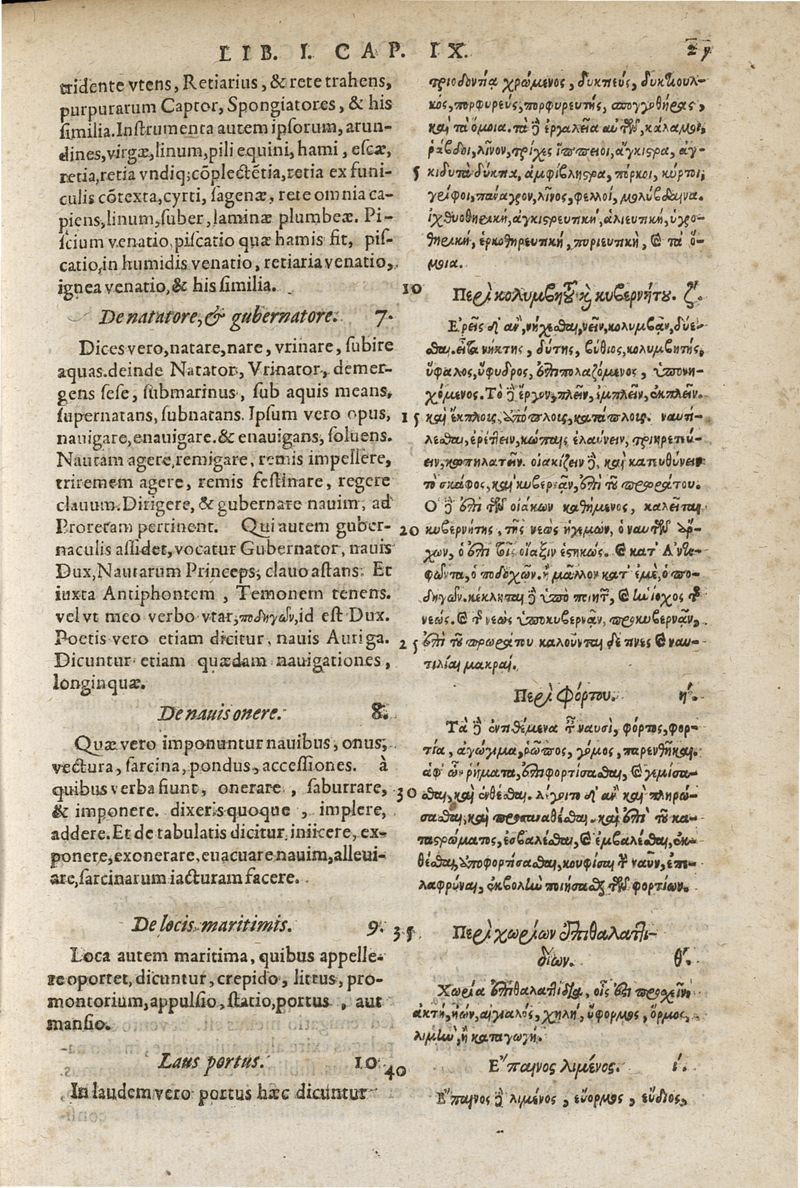 LIB. I. CAP. IX. 27
tridente vtens, Retiarius, & rete trahens,
purpurarum Captor, Spongiatores, & his
similia. Instrumenta autem ipsorum, arun-
dines, virgæ, linum, pili equini, hami, escæ,
retia, retia vndiq; cōplectētia, retia ex funi-
culis cōtexta, cyrti, sagenæ, rete omnia ca-
piens, linum, suber, laminæ plumbeæ. Pi-
scium venatio, piscatio quæ hamis fit, pis-
catio, in humidis venatio, retiaria venatio,
ignea venatio, & his similia.
De natatore, & gubernatore. 7.
Dices vero, natare, nare, vrinare, subire
aquas. deinde Natator, Vrinator, demer-
gens sese, submarinus, sub aquis means,
supernatans, subnatans. Ipsum vero opus,
nauigare, enauigare. & enauigans, soluens.
Nautam agere, remigare, remis impellere,
triremem agere, remis festinare, regere
clauum. Dirigere, & gubernare nauim, ad
Proretam pertinent. Qui autem guber-
naculis assidet, vocatur Gubernator, nauis
Dux, Nautarum Princeps, clauo astans. Et
iuxta Antiphontem, Temonem tenens.
vel vt meo verbo vtar, ποδηγῶν, id est Dux.
Poetis vero etiam dicitur, nauis Auriga.
Dicuntur etiam quædam nauigationes,
longinquæ.
De nauis onere. 8.
Quæ vero imponuntur nauibus, onus,
vectura, sarcina, pondus, accessiones. à
quibus verba fiunt, onerare, saburrare,
& imponere. dixeris quoque, implere,
addere. Et de tabulatis dicitur, iniicere, ex-
ponere, exonerare, euacuare nauim, alleui-
are, sarcinarum iacturam facere.
De locis maritimis. 9.
Loca autem maritima, quibus appella-
re oportet, dicuntur, crepido, littus, pro-
montorium, appulsio, statio, portus, aut
mansio.
Laus portus. 10.
In laudem vero portus hæc dicuntur
5
10
15
20
25
30
35
40
τριόδοντι χρώμενος, δικτυεύς, δικτυουλ-
κός, πορφυρεύς, πορφυρευτής, σπογγοθήρας,
καὶ τὰ ὅμοια. τὰ δὲ ἐργαλεῖα αὐτῶν, κάλαμοι,
ῥάβδοι, λίνον, τρίχες ἵππειοι, ἄγκιστρα, ἀγ-
κύρτοι,
γρίφοι, πάναγρον, λίνος, φελλοί, μολύβδαινα.
ἰχθυοθηρική, ἀγκιστρευτική, ἁλιευτική, ὑγρο-
θηρική, ἑρκοθηρευτική, πυριευτική, καὶ τὰ ὅ-
μοια.
Περὶ κολυμβητοῦ καὶ κυβερνήτου. ζ΄.
Ἐρεῖς δ' ἂν, νήχεσθαι, νεῖν, κολυμβᾶν, δύε-
σθαι. εἶτα νήκτης, δύτης, βύθιος, κολυμβητής,
ὕφαλος, ὕφυδρος, ἐπιπολαζόμενος, ὑπονη-
χόμενος. Τὸ δὲ ἔργον, πλεῖν, ἐμπλεῖν, ἐκπλεῖν.
ναυτί-
λεσθαι, ἐρέττειν, κώπαις ἐλαύνειν, τριηρεύ-
ειν, κωπηλατεῖν. οἰακίζειν δὲ, καὶ κατευθύνειν
τὸ σκάφος, καὶ κυβερνᾶν, ἐπὶ τοῦ πρωράτου.
Ὁ δὲ ἐπὶ τῶν οἰάκων καθήμενος, καλεῖται
κυβερνήτης, τῆς νεὼς ἡγεμών, ὁ ναυτῶν ἄρ-
χων, ὁ ἐπὶ τοῖς οἴαξιν ἑστηκώς. καὶ κατ' Ἀντι-
φῶντα, ὁ ποδοχῶν. ἢ μᾶλλον κατ' ἐμὲ, ὁ πο-
δηγῶν. κέκληται δὲ ὑπὸ ποιητῶν, καὶ ἡνίοχος τῆς
νεώς.
καλοῦνται δέ τινες καὶ ναυ-
τιλίαι μακραί.
Περὶ φόρτου. η΄.
Τὰ δὲ ἐντιθέμενα ταῖς ναυσὶ, φόρτος, φορ-
τία, ἀγώγιμα, ῥῶπος, γόμος, παρενθῆκαι.
ἀφ' ὧν ῥήματα, ἐπιφορτίσασθαι, καὶ γεμίσα-
σθαι, καὶ ἐνθέσθαι. λέγοιτο δ' ἂν καὶ πληρώ-
σασθαι, καὶ προσαναθέσθαι. καὶ ἐπὶ τοῦ κα-
ταστρώματος, ἐσβαλέσθαι, καὶ ἐμβαλέσθαι, ἐκ-
θέσθαι, ἀποφορτίσασθαι, κουφίσαι τὴν ναῦν, ἐπε-
λαφρῦναι, ἐκβολὴν ποιήσασθαι τῶν φορτίων.
Περὶ χωρίων ἐπιθαλαττι-
δίων. θ΄.
Χωρία ἐπιθαλαττίδια, οἷς ἔστι προσχεῖν,
ἀκτή, ἠϊών, αἰγιαλός, χηλή, ὕφορμος, ὅρμος,
λιμήν, ἢ καταγωγή.
Ἔπαινος λιμένος. ι΄.
Ἔπαινος δὲ λιμένος, εὔορμος, εὔδιος,